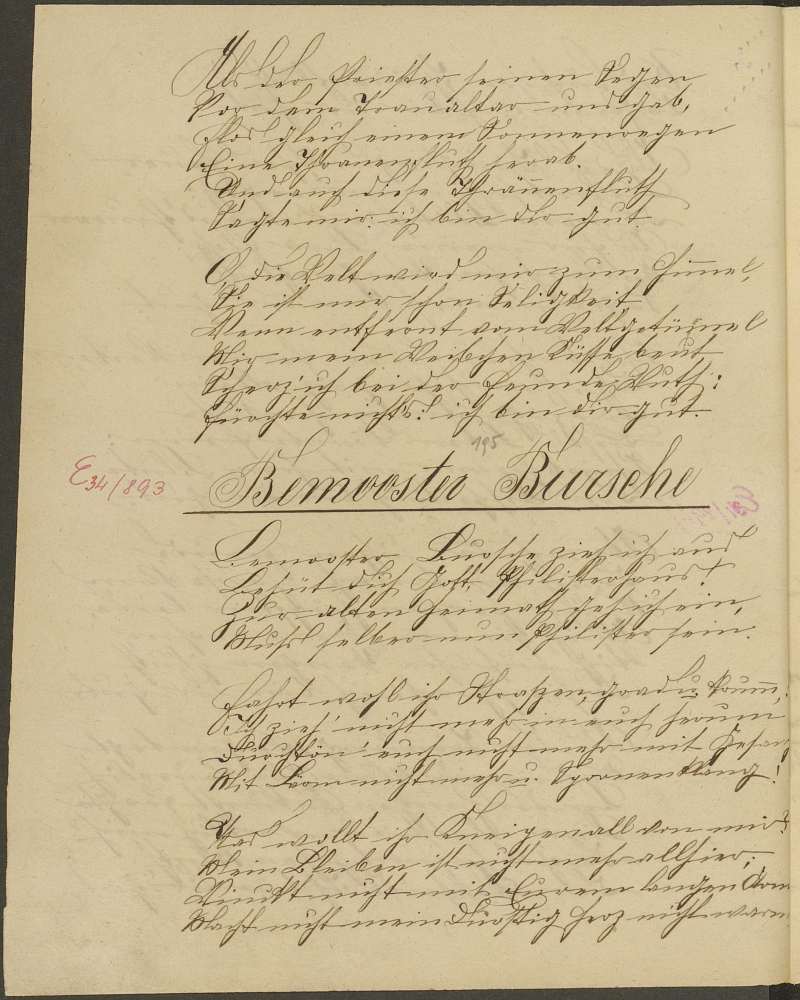 Als der Priester seinen Segen
Vor dem Traualtar uns gab,
Floß gleich einem Sonnenregen
Eine Thränenfluth herab.
Und auch diese Thränenfluth
Sagte mir: ich bin dir gut.
O, die Welt wird mir zum Himmel,
Sie ist mir schon Seligkeit
Wenn entfernt vom Weltgetümmel
Mir mein Weibchen Küsse beut
Scherz' ich bei der Feunde Wuth:
Fürchte nichts! ich bin dir gut.
195
E34/893
Bemooster Bursche
Bemooster Bursche zieh ich aus
Behüt dich Gott Philisterhaus!
Zur alten Heimath geh ich ein,
Muß selber nun Philister sein.
Fahrt wohl ihr Straszen, grad u. krumm,
Ich zieh' nicht mehr in euch herum
Durchtön' euch nicht mehr mit Gesang
Mit Lärm nicht mehr u. Spornenklang!
Was wollt ihr Kneipen all von mir?
Mein Bleiben ist nicht mehr allhier;
Winkt nicht mit Eurem langen Arm
Macht nicht mein durstig Herz nicht warm